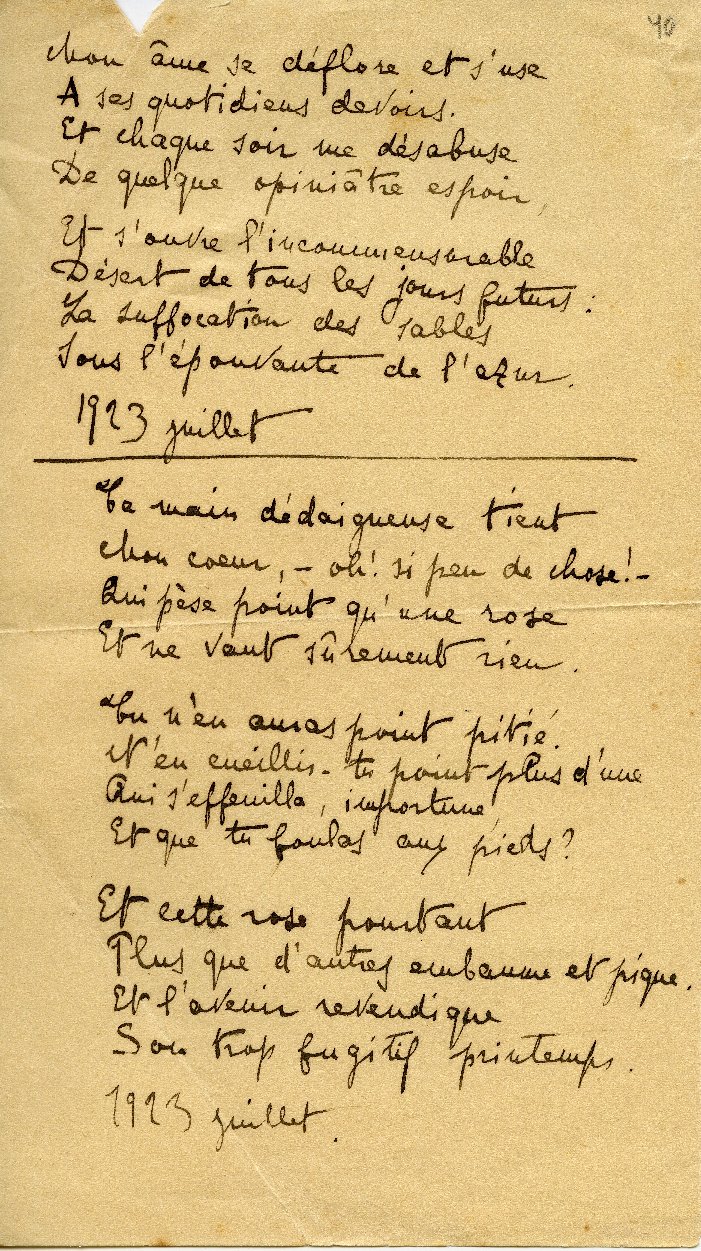 40
Mon âme se déflore et s'use
A ses quotidiens devoirs.
Et chaque soir me désabuse
De quelque opiniâtre espoir,
Et s'ouvre l'incommensurable
Désert de tous les jours futurs :
La suffocation des sables
Sous l'épouvante de l'azur.
1923 juillet
Ta main dédaigneuse tient
Mon coeur, – oh! si peu de chose! –
Qui pèse point qu'une rose
Et ne vaut sûrement rien.
Tu n'en auras point pitié.
N'en cueillis-tu point plus d'une
Qui s'effeuilla, importune,
Et que tu foulas aux pieds?
Et cette rose pourtant
Plus que d'autres embaume et pique.
Et l'avenir revendique
Son trop fugitif printemps.
1923 juillet.